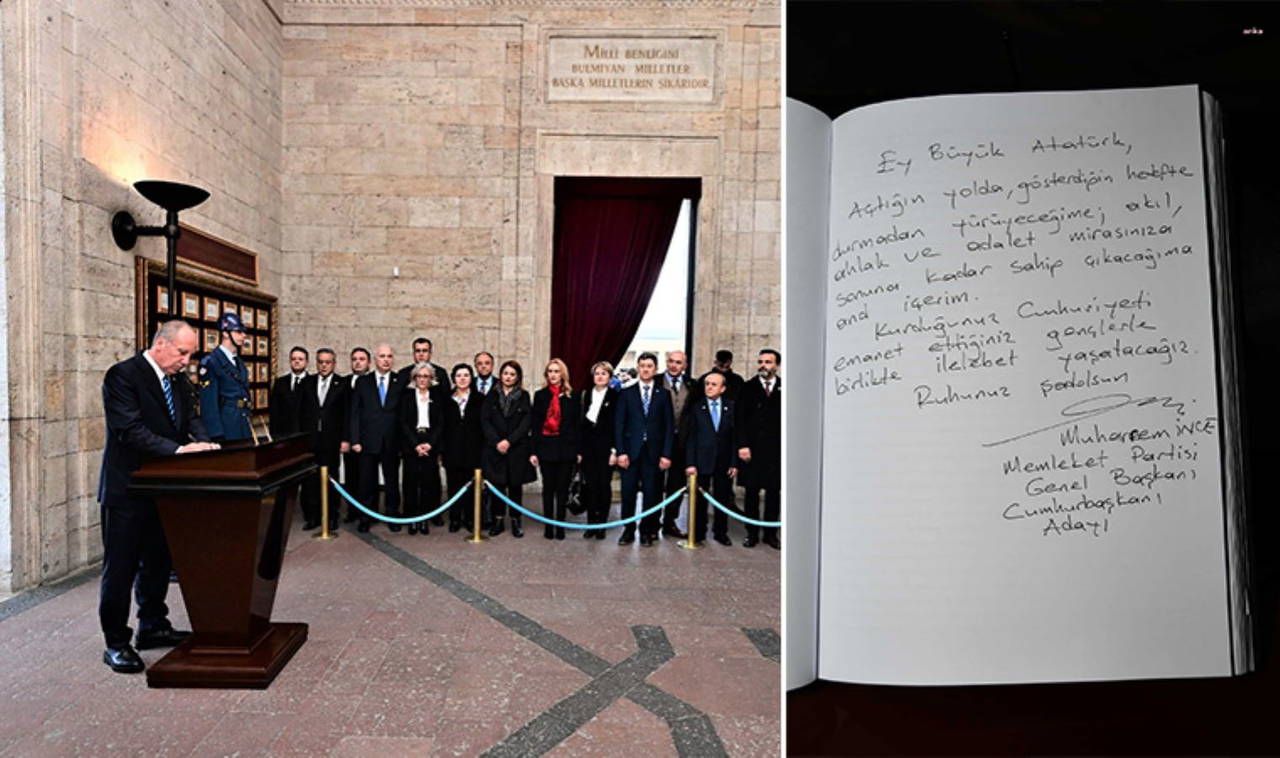 MİLLİ BENLİĞİNİ
BULMIYAN MİLLETLER
BAŞKA MİLLETLERİN ŞİKARIDIR.
anka
Ey Büyük Atatürk,
Açtığın yolda, gösterdiğin hedefte
durmadan yürüyeceğime; akıl,
ahlak ve adalet mirasınıza
sonuna kadar sahip çıkacağıma
and içerim.
Kurduğunuz Cumhuriyeti
emanet ettiğiniz gençlerle
birlikte ilelebet yaşatacağız.
Ruhunuz şadolsun
Muharrem İNCE
Memleket Partisi
Genel Başkanı
Cumhurbaşkanı
Adayı